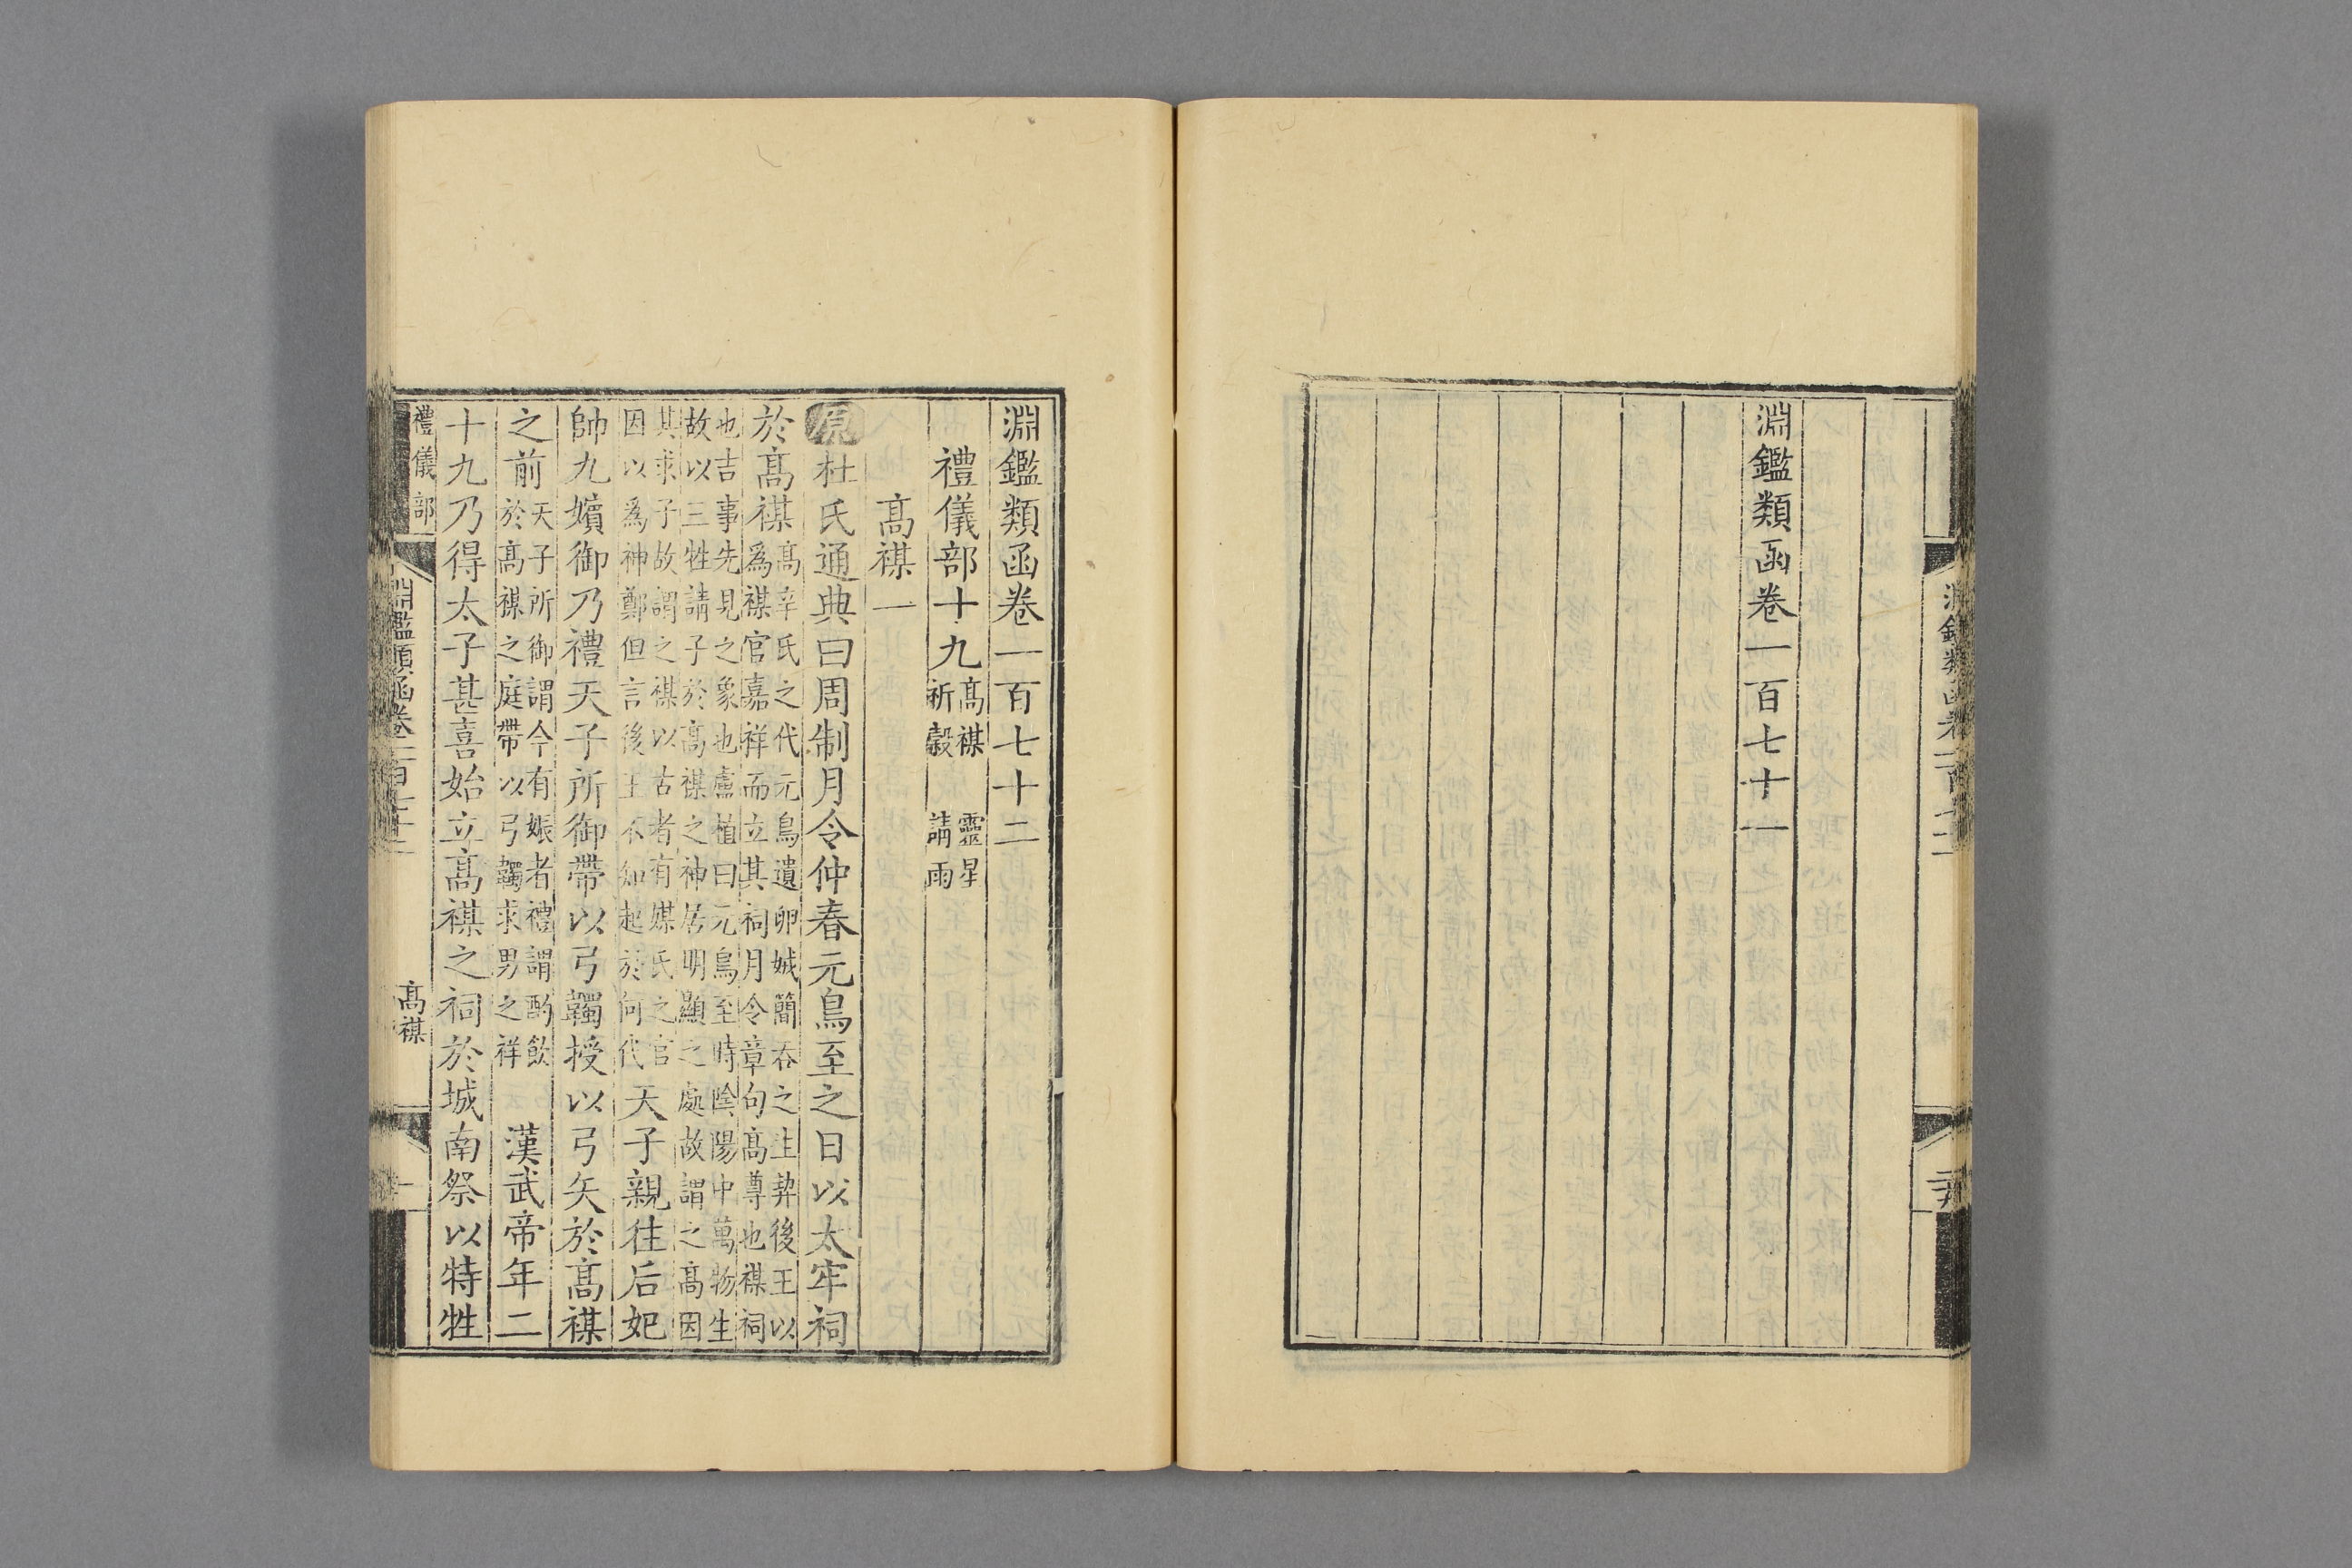 淵鑑類函卷一百七十一
淵鑑類函卷一百七十二
禮儀部十九 高禖 靈星 祈穀 請雨
高禖一
原杜氏通典曰周制月令仲春元鳥至之日以太牢祠
於高禖 高辛氏之代元鳥遺卵娀簡吞之生契後王以
爲禖官嘉祥而立其祠月令章句高尊也禖祠
也吉事先見之象也盧植曰元鳥至時陰陽中萬物生
故以三牲請子於高禖之神居明顯之處故謂之高因
其求子故謂之禖以古者有媒氏之官
因以爲神鄭但言後王不知起於何代 天子親往后妃
帥九嬪御乃禮天子所御帶以弓韣授以弓矢於高禖
之前 天子所御謂今有娠者禮謂酌飲
於高禖之庭帶以弓韣求男之祥 漢武帝年二
十九乃得太子甚喜始立高禖之祠於城南祭以特牲
禮儀部
淵鑑類函卷一百七十二
高禖
一